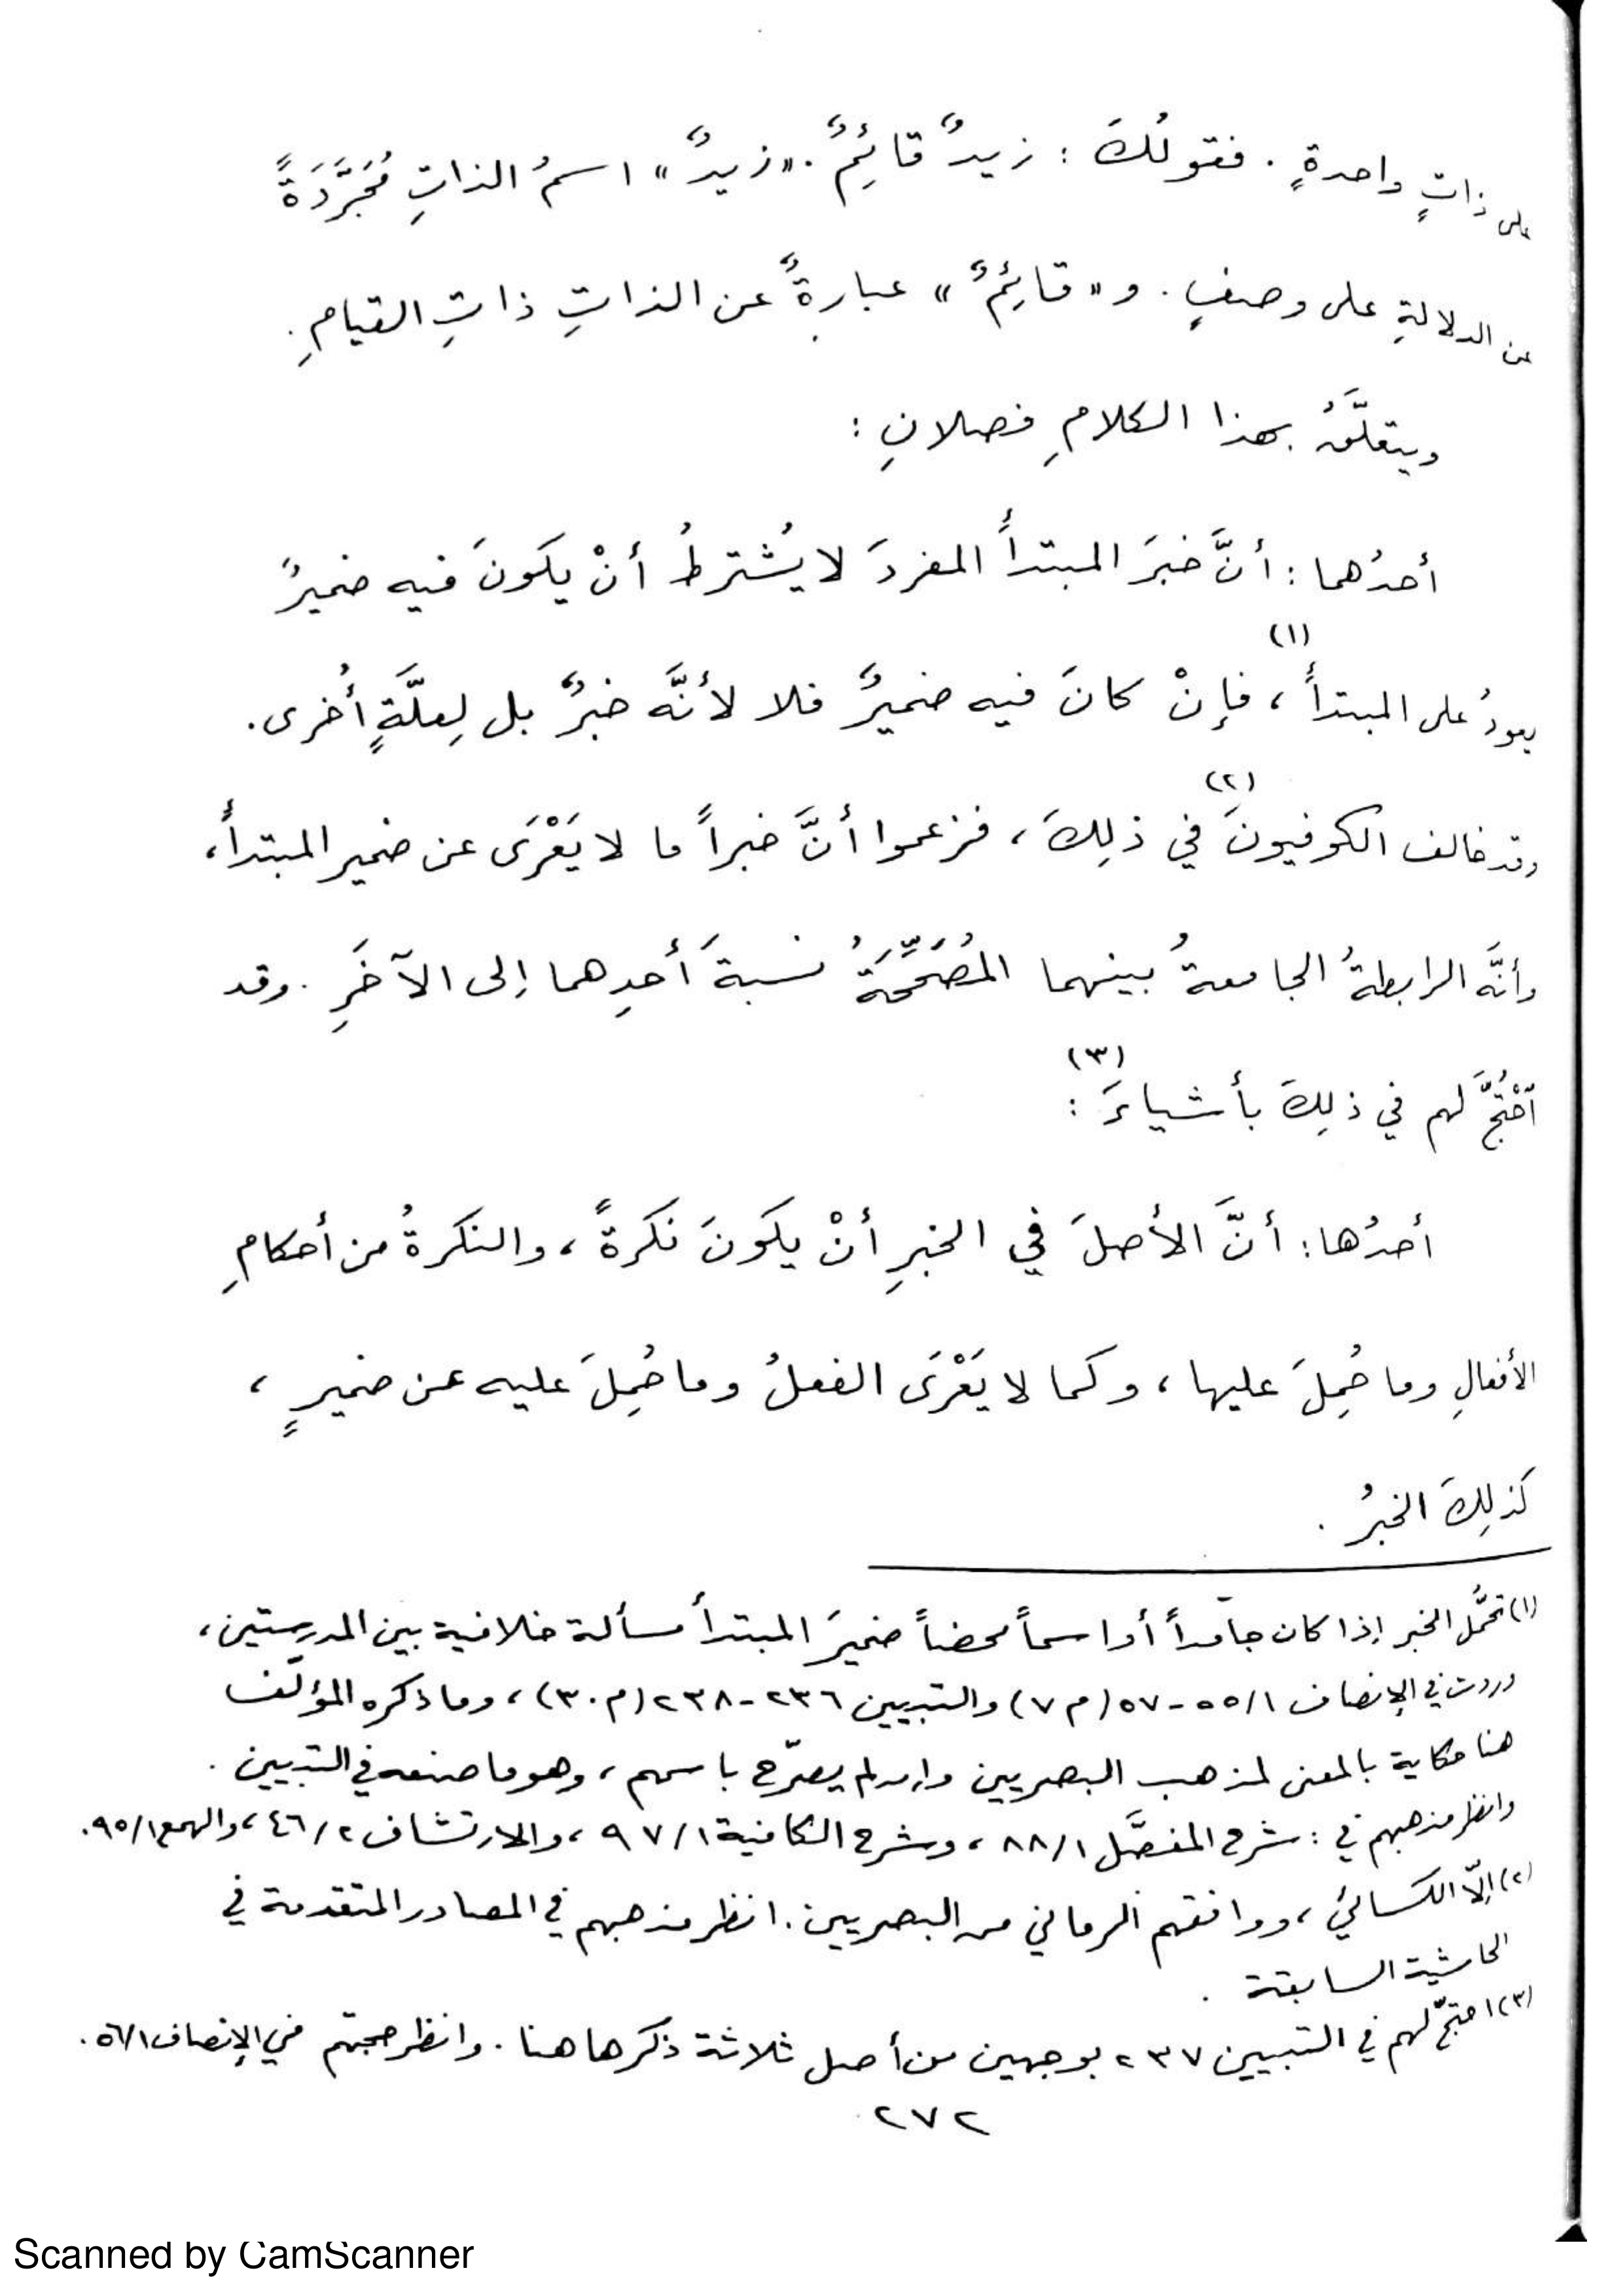 على ذاتٍ واحدةٍ . فقولُكَ : زيدٌ قائِمٌ . «زيدٌ» اسمُ الذاتِ مُجَرَّدَةً
عن الدلالةِ على وصفٍ . و «قائِمٌ» عبارةٌ عن الذاتِ ذاتِ القيامِ .
ويتعلَّقُ بهذا الكلامِ فصلانِ :
أحدُهما : أنَّ خبرَ المبتدأُ المفردَ لا يُشترطُ أنْ يكونَ فيه ضميرٌ
يعودُ على المبتدأُ (١) ، فإنْ كانَ فيه ضميرٌ فلا لأنَّه خبرٌ بل لِعلَّةٍ أُخرى .
وقد خالف الكوفيونَ (٢) في ذلِكَ ، فزعموا أنَّ خبراً ما لا يَعْرَى عن ضمير المبتدأُ ،
وأنَّه الرابطةُ الجامعةُ بينهما المُصَحِّحَةُ نسبةَ أحدِهما إلى الآخَرِ . وقد
ٱحْتُجَّ لهم في ذلِكَ بأشياءَ (٣) :
أحدُها : أنَّ الأصلَ في الخبرِ أنْ يكونَ نكرةً ، والنكرةُ من أحكامِ
الأفعالِ وما حُمِلَ عليها ، وكما لا يَعْرَى الفعلُ وما حُمِلَ عليه عن ضميرٍ ،
كذلِكَ الخبرُ .
(١) تحمُّل الخبر إذا كان جامداً أو اسماً محضاً ضميرَ المبتدأ مسألة خلافية بين المدرستين ،
وردت في الإنصاف ٥٥/١ - ٥٧ (م ٧) والتبيين ٢٣٦ - ٢٣٨ (م ٣٠) ، وما ذكره المؤلّف
هنا حكاية بالمعنى لمذهب البصريين وإن لم يصرّح باسمهم ، وهو ما صنعه في التبيين .
وانظر مذهبهم في : شرح المفصَّل ٨٨/١ ، وشرح الكافية ٩٧/١ ، والارتشاف ٤٦/٢ ، والهمع ٩٥/١ .
(٢) إلّا الكسائيّ ، ووافقهم الرماني من البصريين . انظر مذهبهم في المصادر المتقدمة في
الحاشية السابقة .
(٣) احتجّ لهم في التبيين ٢٣٧ بوجهين من أصل ثلاثة ذكرها هنا . وانظر حجتهم في الإنصاف ٥٦/١ .
٢٧٢
Scanned by CamScanner